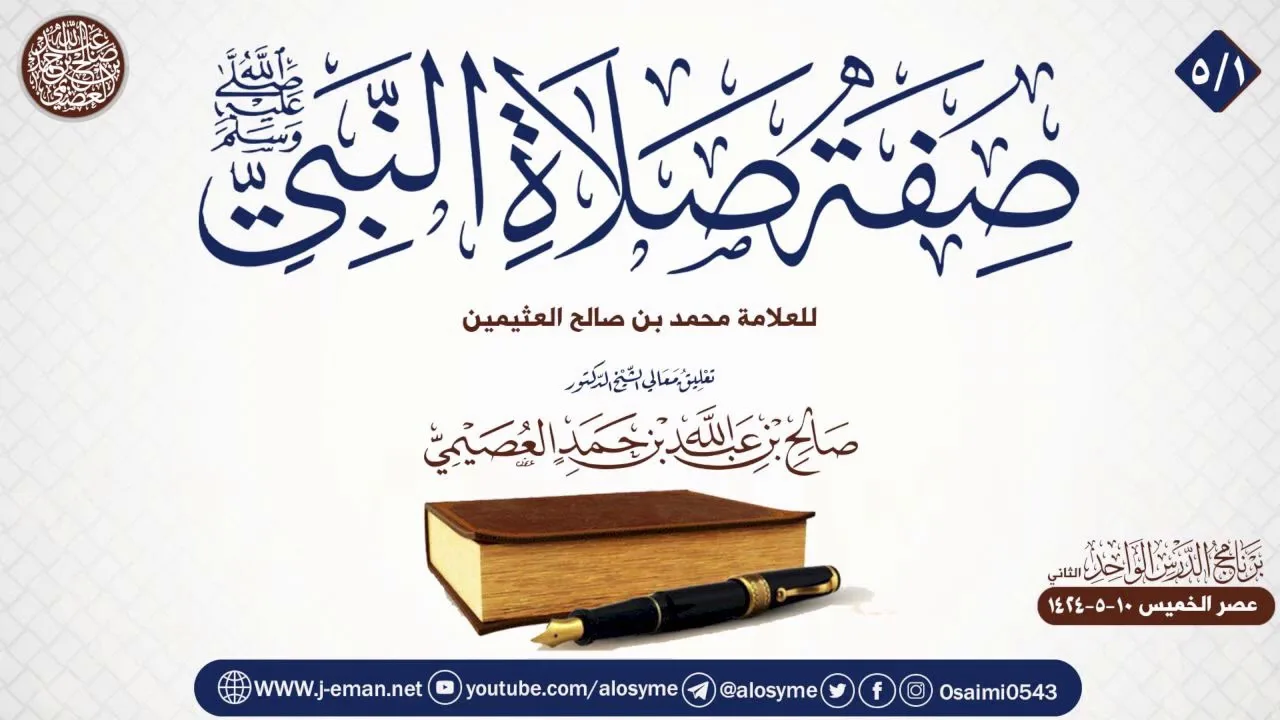 صالح بن عبدالله بن حمد العصيمي
٥/١
صِفَةُ صَلَاةِ النَّبِيِّ
صَلَّى اللَّهُ
عَلَيْهِ
وَسَلَّمَ
للعلامة محمد بن صالح العثيمين
تَعْلِيقُ مَعَالِي الشَّيْخِ الدُّكْتُورِ
صَالِحِ بْنِ عَبْدِ اللَّهِ بْنِ حَمَدٍ الْعُصَيْمِيِّ
بَرْنَامَجُ الدَّرْسِ الْوَاحِدِ الثاني
عصر الخميس ١٠-٥-١٤٢٤
WWW.j-eman.net youtube.com/alosyme @alosyme Osaimi0543